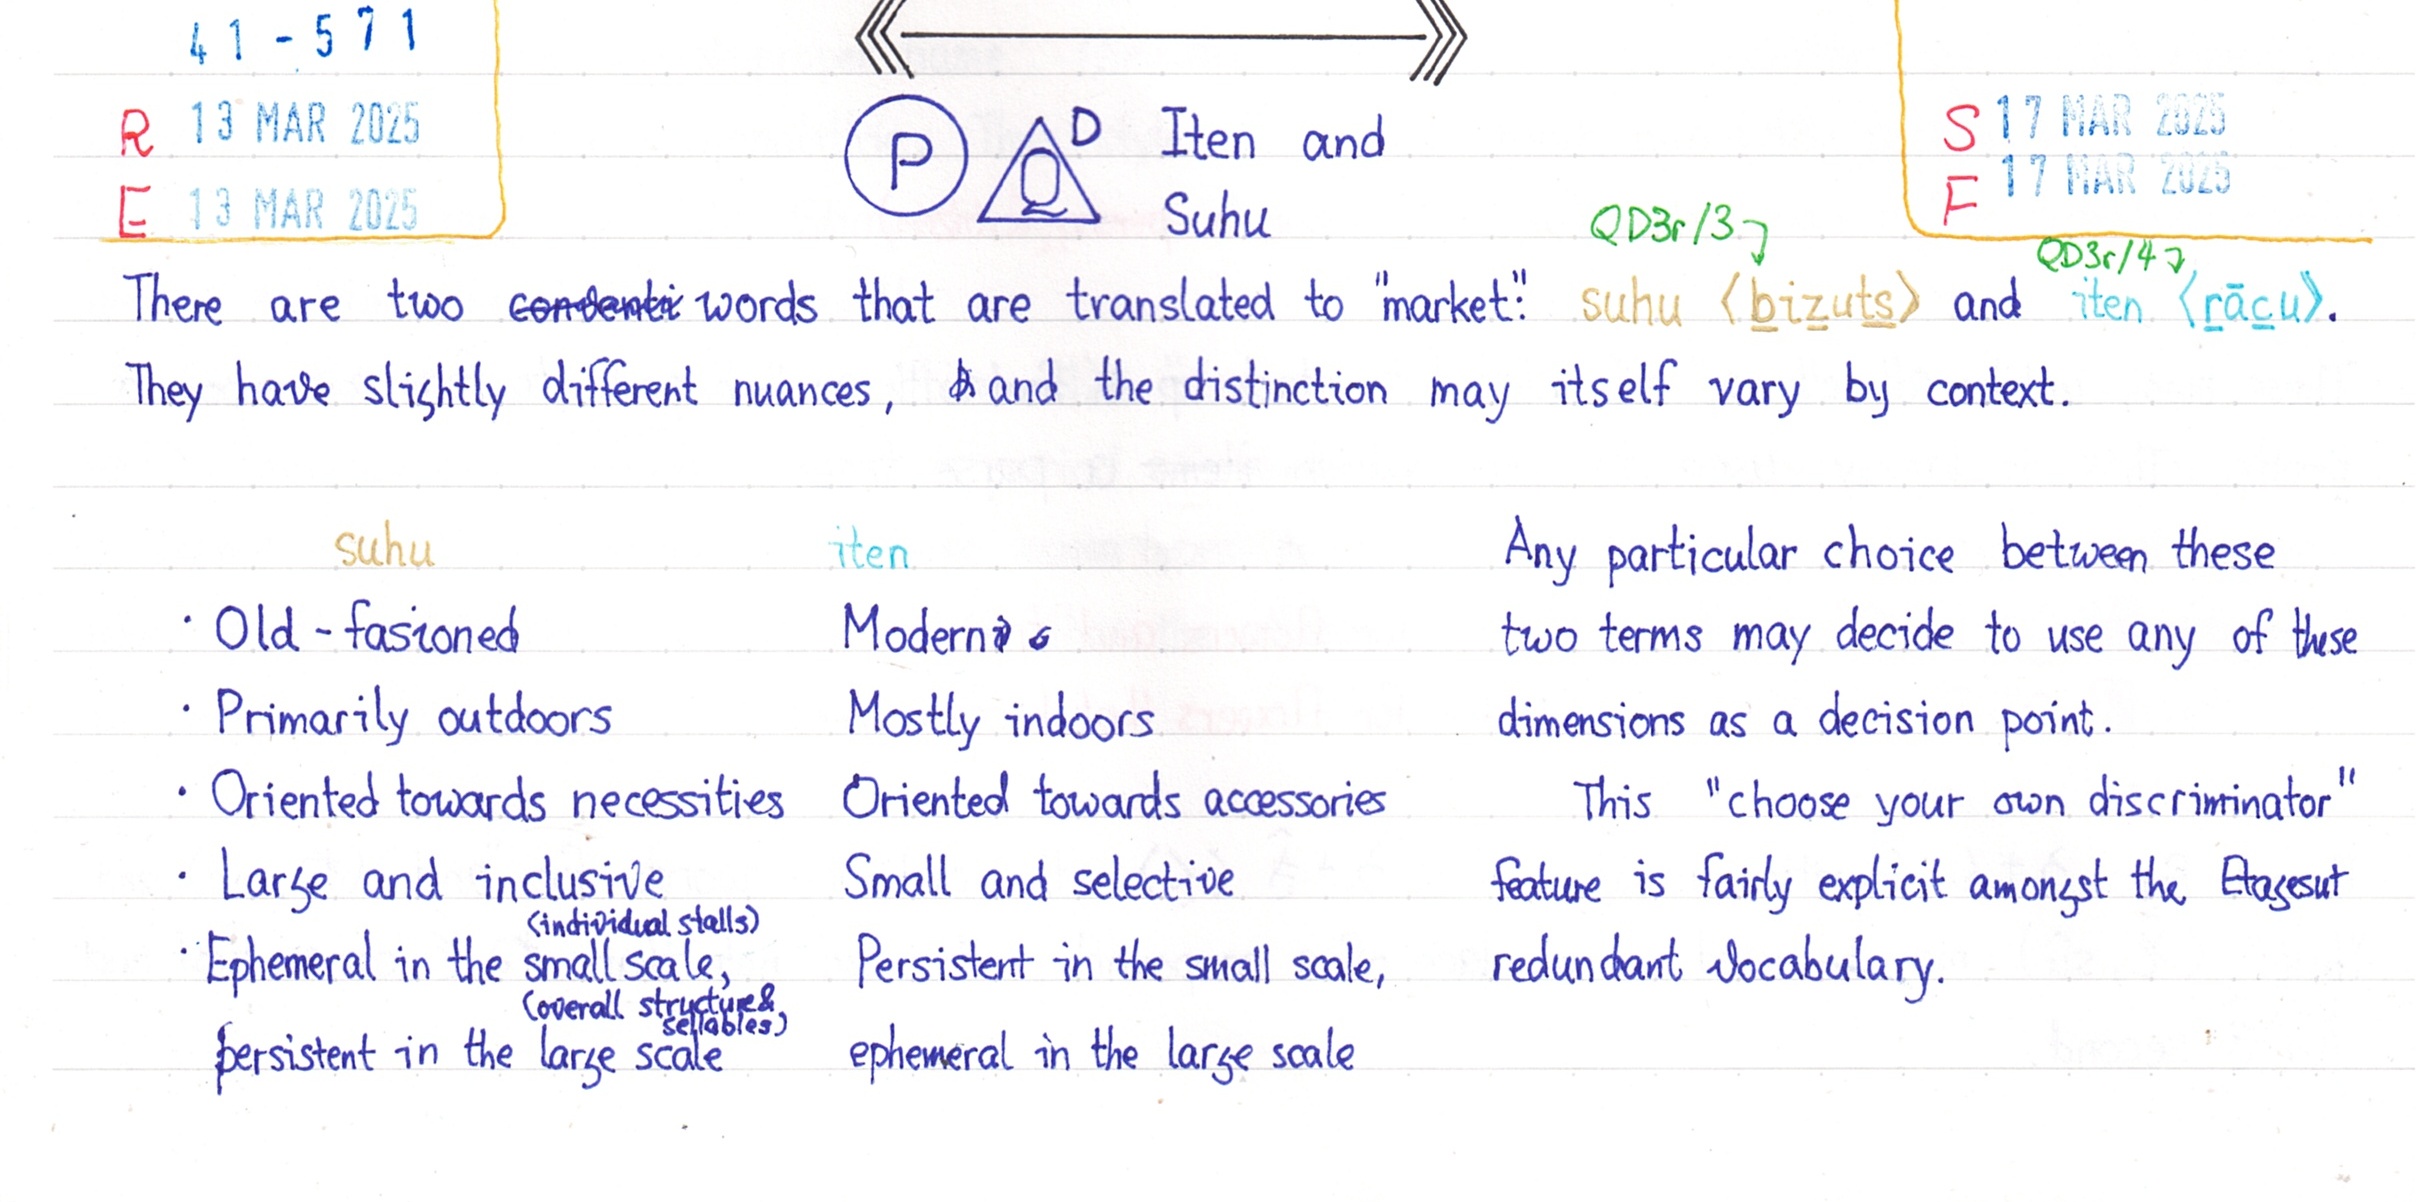 41-571
R 13 MAR 2025
E 13 MAR 2025
P Q D Iten and
Suhu
S 17 MAR 2025
F 17 MAR 2025
QD3r/3
QD3r/4
There are two words that are translated to "market": suhu ⟨b̲iz̲uts̲⟩ and iten ⟨r̲āc̲u⟩.
They have slightly different nuances, and the distinction may itself vary by context.
suhu
· Old-fasioned
· Primarily outdoors
· Oriented towards necessities
· Large and inclusive
(individual stalls)
· Ephemeral in the small scale,
(overall structure &
sellables)
persistent in the large scale
iten
Modern
Mostly indoors
Oriented towards accessories
Small and selective
Persistent in the small scale,
ephemeral in the large scale
Any particular choice between these
two terms may decide to use any of these
dimensions as a decision point.
This "choose your own discriminator"
feature is fairly explicit amongst the Etagesut
redundant vocabulary.